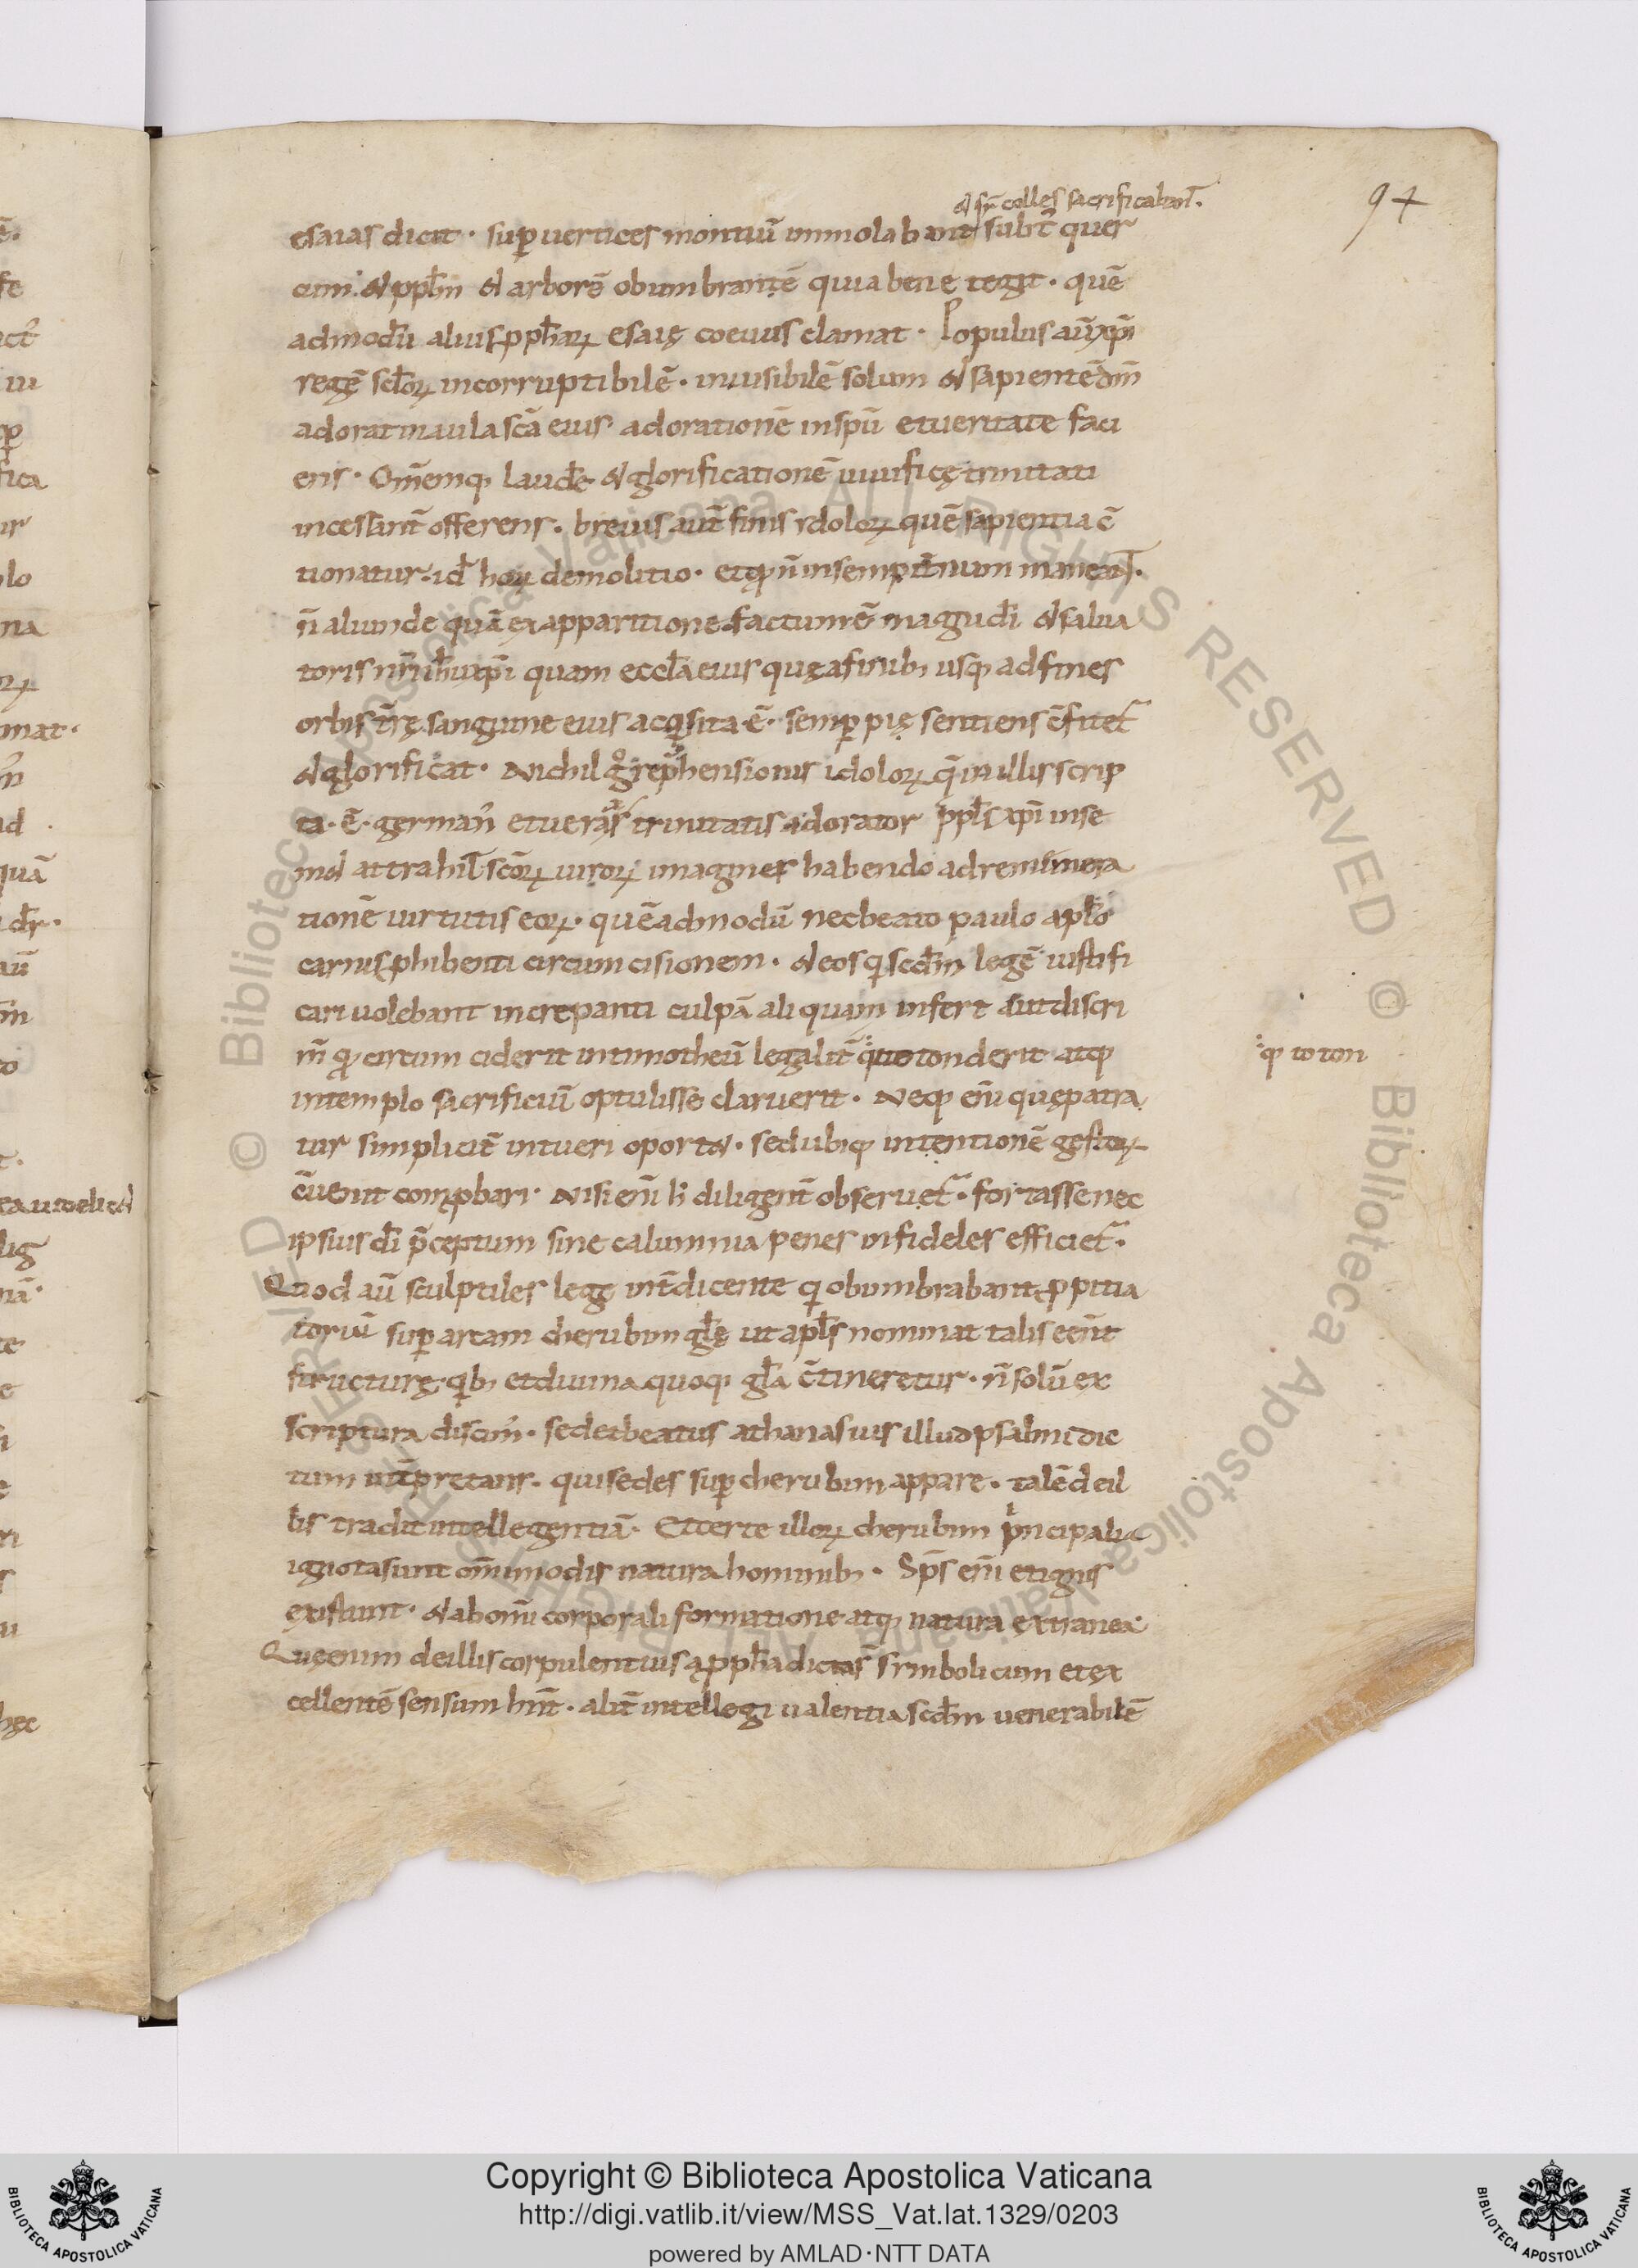 97
& sr̄ colles sacrificabant.
esaias dicit · sup uertices montiū immolabant subt̄ quer
cum · & pplm̄ & arborē obumbrantē quia bene tegit · quē
admodū alius ꝓphaꝝ esaię coeuus clamat · Populus aū xp̄i
regē sclōꝝ incorruptibilē · inuisibilē solum & sapientē dm̄
adorat in aula scā eius adorationē in spū et ueritate faci
ens · Om̄emq; laudē & glorificationē uiuificę trinitati
incessant̄ offerens · breuis aut̄ finis idoloꝝ quē sapientia c̄
tionatur · id hoꝝ demolitio · et qd n̄ in sempit̄num maneant̄ ·
n̄ aliunde quā ex apparitione factum ē magni dī & salua
toris nr̄i ih̄u xp̄i quam eccl̄a eius quę a finib; usq; ad fines
orbis tr̄ę sanguine eius acq̇sita ē · semp pię sentiens c̄fitet̄
& glorificat · Nichil g̊ rep̄hensionis idoloꝝ q̄ in illis scrip
ta · ē · germanꝰ et uerax trinitatis adorator ppls̄ xp̄i in se
m& attrahit̄ scōꝝ uiroꝝ imagines habendo ad rememora
tionē uirtutis eoꝝ · quēadmodū nec beato paulo aplō
carnis ꝓhibenti circumcisionem · & eos q̇ scdm̄ legē iustifi
cari uolebant increpanti culpā aliquam infert aut discri
m̄ qd circumciderit in timotheū legalit̄ quo tonderit atq;
q; to ton
in templo sacrificiū optulisse claruerit · Neq; eni quę patra
tur simplicit̄ intueri oport& · sed ubiq; intentionē gestoꝝ
c̄uenit comꝓbari · Nisi eni h̄ diligent̄ obseruet̄ · fortasse nec
ipsius dī p̄ceptum sine calumnia penes infideles efficiet̄ ·
Quod aū sculptiles lege int̄dicente q̇ obumbrabant ꝓpitia
toriū sup arcam cherubim gl̄ę ut apls̄ nominat talis er̄nt
structurę · q̇b; et diuina quoq; gl̄a c̄tineretur · n̄ solū ex
scriptura discimꝰ · sed et beatus athanasius illud psalmi dic
tum int̄pretans · qui sedes sup cherubim appare · talē de il
lis tradit intellegentiā · Et certe illoꝝ cherubim pͥncipalia
ignota sunt om̄imodis natura hominib; · Sp̄s eni et ignis
existunt · & ab omī corporali formatione atq; natura extranea
Quę enim de illis corpulentius a ꝓph̄a dicta s̄ simbolicum et ex
cellentē sensum hn̄t · alit̄ intellegi ualentia scdm̄ uenerabilē
Copyright © Biblioteca Apostolica Vaticana
http://digi.vatlib.it/view/MSS_Vat.lat.1329/0203
powered by AMLAD·NTT DATA